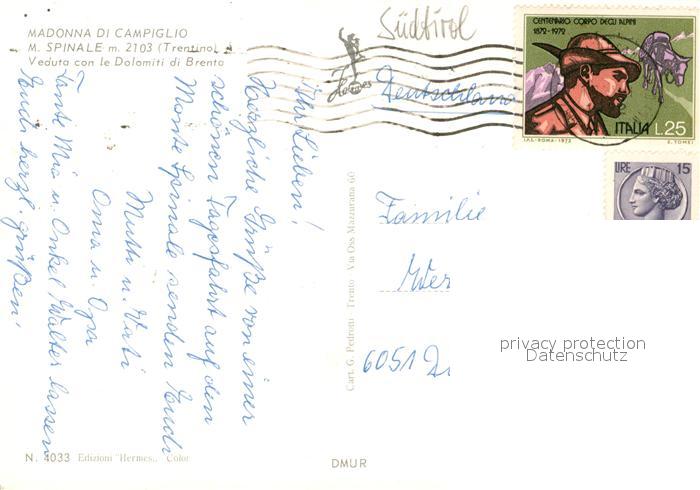 MADONNA DI CAMPIGLIO
M. SPINALE m. 2103 (Trentino)
Veduta con le Dolomiti di Brenta
Südtirol
Hermes
Deutschland
CENTENARIO CORPO DEGLI ALPINI
1872-1972
ITALIA L.25
I.P.S.-ROMA-1972
E. TOMEI
LIRE 15
Ihr Lieben!
Herzliche Grüße von einer
schönen Tagesfahrt auf den
Monte Spinale senden Euch
Mutti u. Vati
Oma u. Opa
Tante Mia u. Onkel Walter lassen
Euch herzl. grüßen.
Cart. G. Pedrotti Trento Via Oss Mazzurana 60
Familie
Wer
6051 Di
privacy protection
Datenschutz
N. 4033 Edizioni "Hermes" Color
DMUR